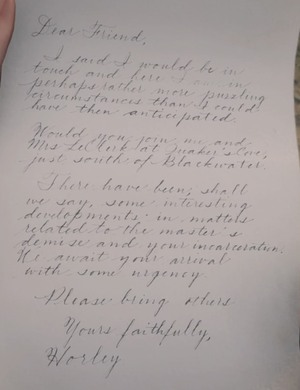 Dear Friend,
I said I would be in
touch and here I am in
perhaps rather more puzzling
circumstances than I could
have then anticipated.
Would you join me and
Mrs Le Clerk at Quaker's Cove,
just south of Blackwater.
There have been, shall
we say, some interesting
developments in matters
related to the master's
demise and your incarceration.
We await your arrival
with some urgency.
Please bring others
Yours faithfully,
Horley